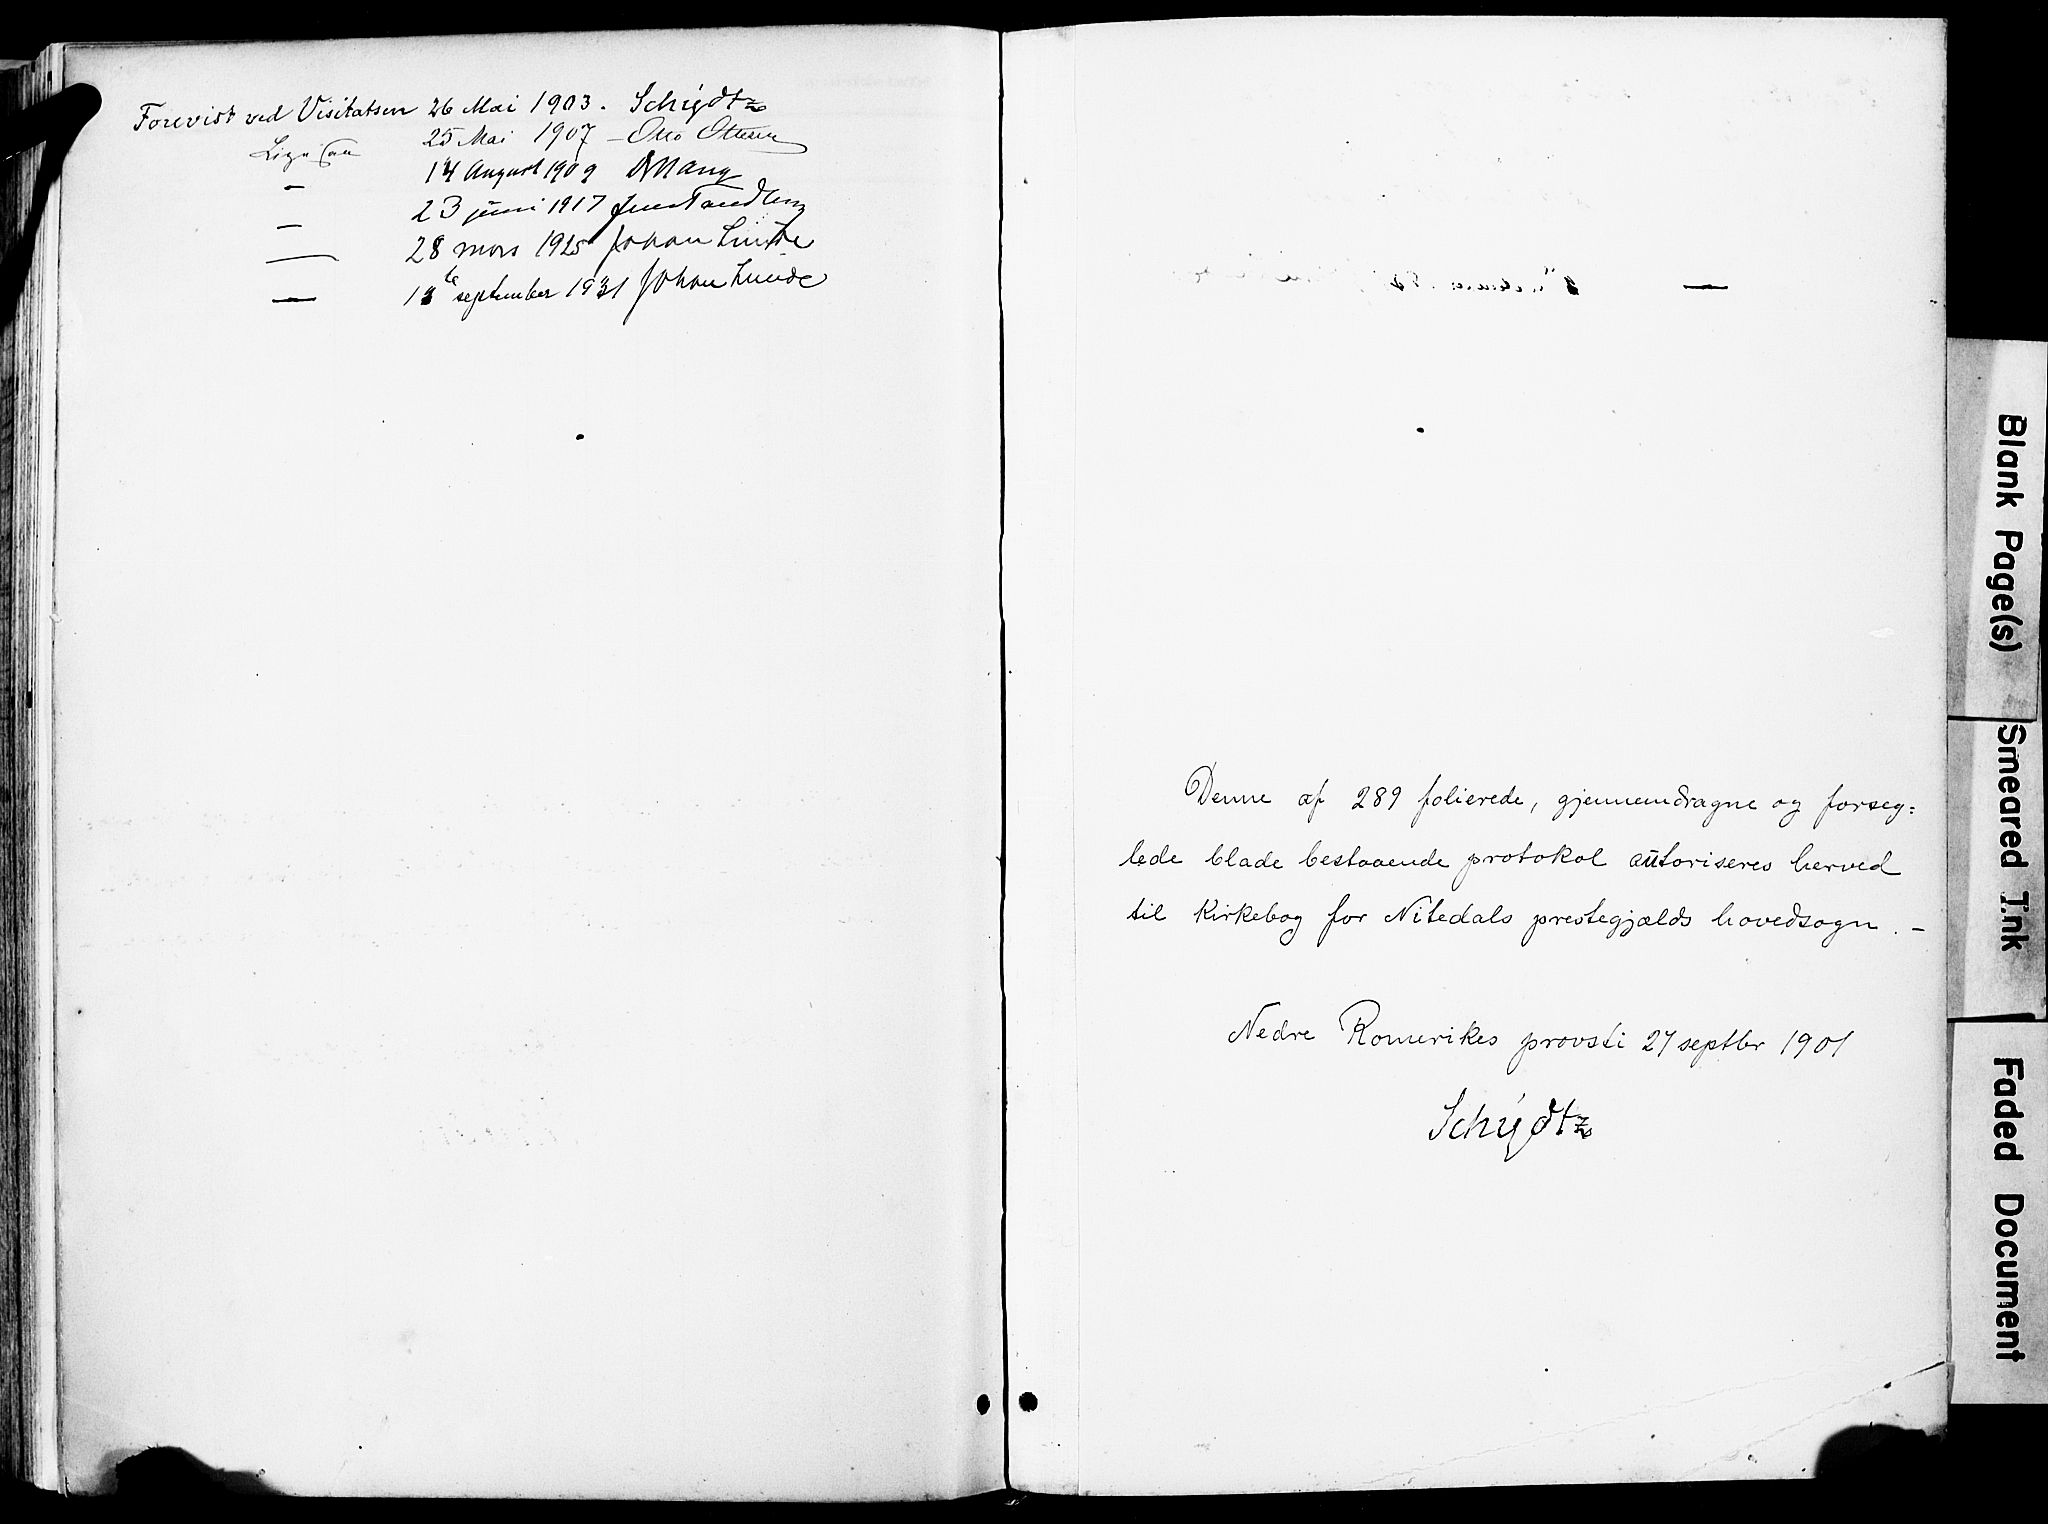 Forevist ved Visitatsen 26 Mai 1903. Schiýdtz
Ligesaa 25 Mai 1907 – Otto Ottesen
– 14 August 1909
– 23 juni 1917 Jens Tandberg
— 28 mars 1925 Johan Lunde
— september 1931 Johan Lunde
—
Denne af 289 folierede, gjennemdragne og forseg=
lede blade bestaaende protokol autoriseres herved
til Kirkebog for Nitedals prestegjælds hovedsogn. –
Nedre Romerikes provsti 27 septbr 1901
Schiýdtz
Blank Page(s)
Smeared Ink
Faded Document